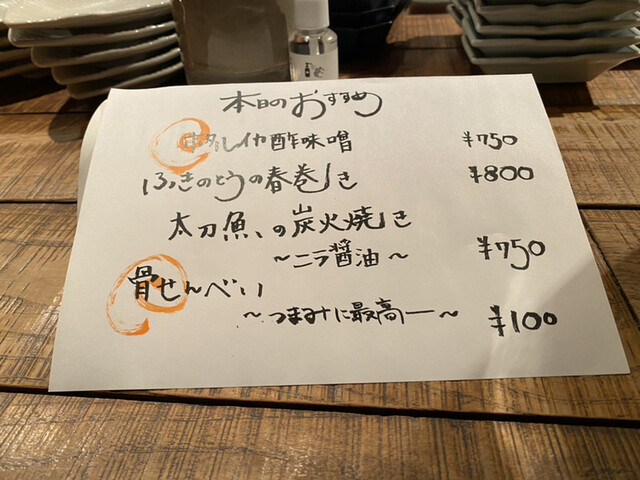 本日のおすすめ
ホタルイカ酢味噌 ¥750
ふきのとうの春巻き ¥800
太刀魚の炭火焼き
～ニラ醤油～ ¥750
骨せんべい
～つまみに最高ー～ ¥100